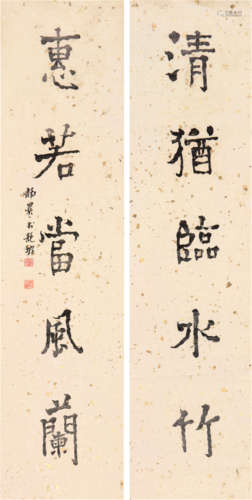 清猶臨水竹
惠若當風蘭